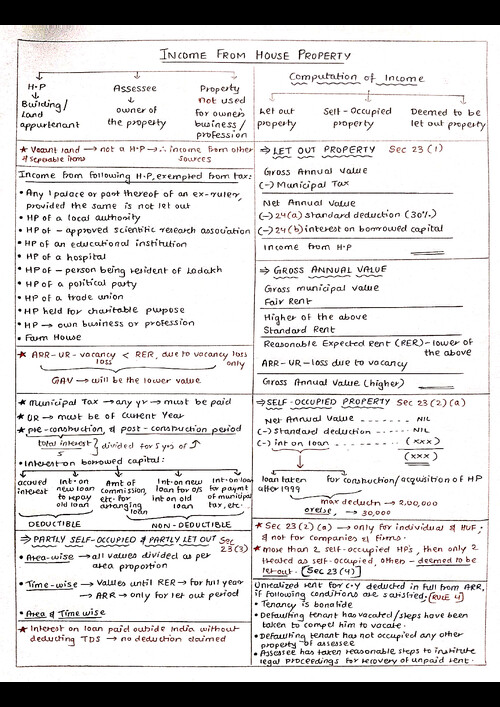 INCOME FROM HOUSE PROPERTY
H.P
Building/
Land
appurtenant
Assessee
owner of
the property
Property
not used
for owner's
business /
profession
★ Vacant land → not a H.P → ∴ income from other
sources
Income from following H.P, exempted from tax:
• Any 1 palace or part thereof of an ex-ruler,
provided the same is not let out
• HP of a local authority
• HP of - approved scientific research association
• HP of an educational institution
• HP of a hospital
• HP of - person being resident of Ladakh
• HP of a political party
• HP of a trade union
• HP held for charitable purpose
• HP → own business or profession
• Farm House
★ ARR-UR-vacancy loss < RER, due to vacancy loss only
GAV → will be the lower value
★ Municipal Tax → any yr → must be paid
★ UR → must be of Current Year
★ pre-construction, & post-construction period
total interest
5
} divided for 5 yrs of ↑
• Interest on borrowed capital:
accured
interest
Int. on
new loan
to repay
old loan
Amt of
commission,
etc. for
arranging
loan
Int. on new
loan for o/s
int. on old
loan
Int. on loan
for paymt
of municipal
tax, etc.
DEDUCTIBLE
NON-DEDUCTIBLE
⇒ PARTLY SELF-OCCUPIED & PARTLY LET OUT Sec 23(3)
• Area-wise → all values divided as per
area proportion
• Time-wise → Values until RER → for full year
→ ARR → only for let out period
• Area & Time wise
★ Interest on loan paid outside India without
deducting TDS → no deduction claimed
Computation of Income
Let out
property
Self-Occupied
property
Deemed to be
let out property
⇒ LET OUT PROPERTY Sec 23(1)
Gross Annual Value
(-) Municipal Tax
Net Annual Value
(-) 24(a) standard deduction (30%)
(-) 24(b) interest on borrowed capital
Income from H.P
⇒ GROSS ANNUAL VALUE
Gross municipal value
Fair Rent
Higher of the above
Standard Rent
Reasonable Expected Rent (RER) - lower of
the above
ARR-UR-loss due to vacancy
Gross Annual Value (higher)
⇒ SELF-OCCUPIED PROPERTY Sec 23(2)(a)
Net Annual Value ...... NIL
(-) Standard deduction ...... NIL
(-) int on loan ........ (xxx)
(xxx)
loan taken
after 1999
for construction/acquisition of HP
max deductn → 2,00,000
or else, → 30,000
★ Sec 23(2)(a) → only for individual & HUF,
& not for companies & firms.
★ more than 2 self-occupied HP's, then only 2
treated as self-occupied, others - deemed to be
let out. [Sec 23(4)]
Unrealized rent for C.Y deducted in full from ARR,
if following conditions are satisfied. [RULE 4]
• Tenancy is bonafide
• Defaulting tenant has vacated/steps have been
taken to compel him to vacate.
• Defaulting tenant has not occupied any other
property of assessee
• Assessee has taken reasonable steps to institute
legal proceedings for recovery of unpaid rent.